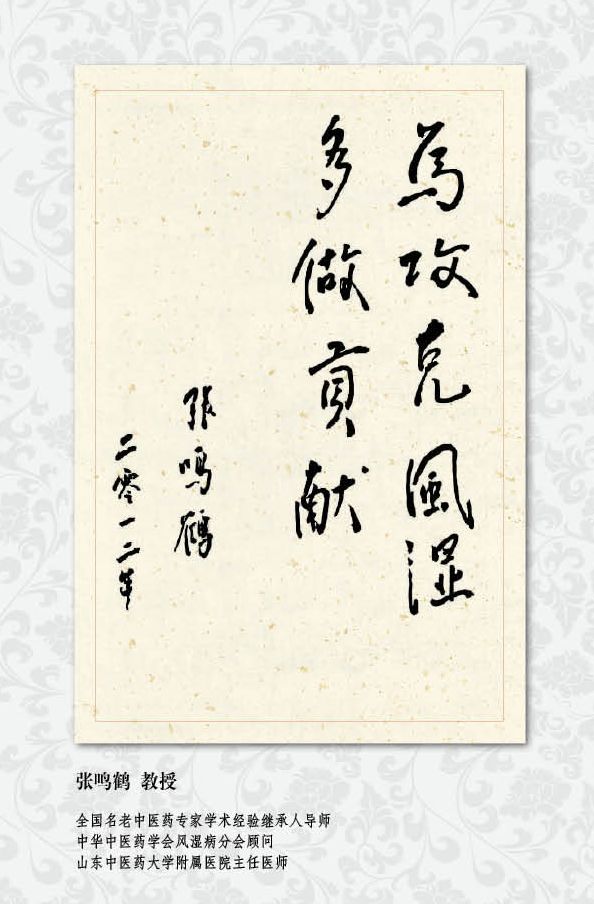 為攻克風湿
多做貢献
張鳴鶴
二零一二年
张鸣鹤 教授
全国名老中医药专家学术经验继承人导师
中华中医药学会风湿病分会顾问
山东中医药大学附属医院主任医师